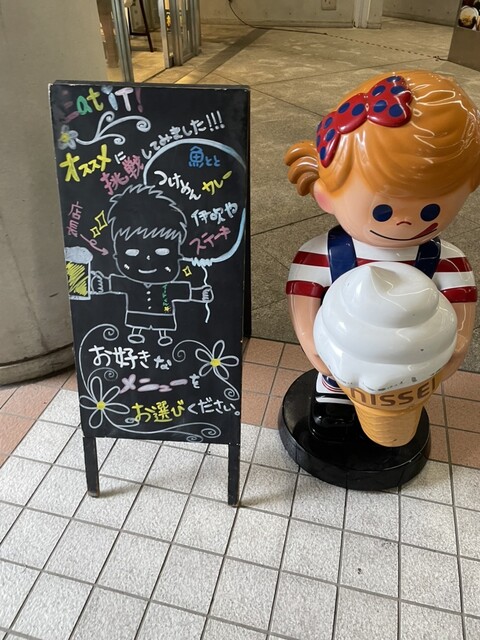 Eat iT!
オススメに
挑戦してみました!!!
魚とと
つけめん カレー
伊吹や
ステーキ
店長
お好きな
メニューを
お選びください。
NISSEI